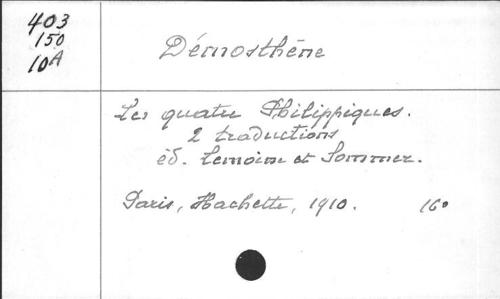 403
150
10A
Démosthène
Les quatre Philippiques.
2 traductions
éd. Lemoine et Sommer.
Paris, Hachette, 1910. 16°